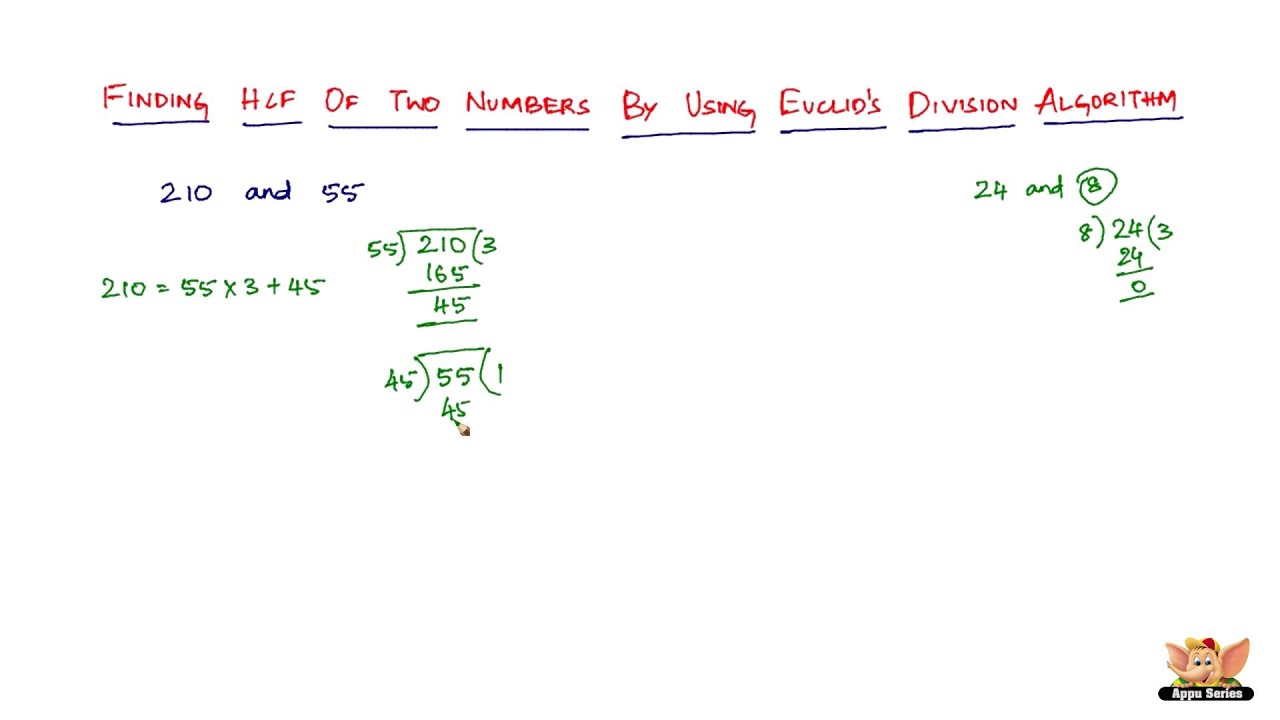 FINDING HCF OF TWO NUMBERS BY USING EUCLID'S DIVISION ALGORITHM
210 and 55
24 and 8
55) 210 (3
165
45
8) 24 (3
24
0
210 = 55 x 3 + 45
45) 55 (1
45
Appu Series